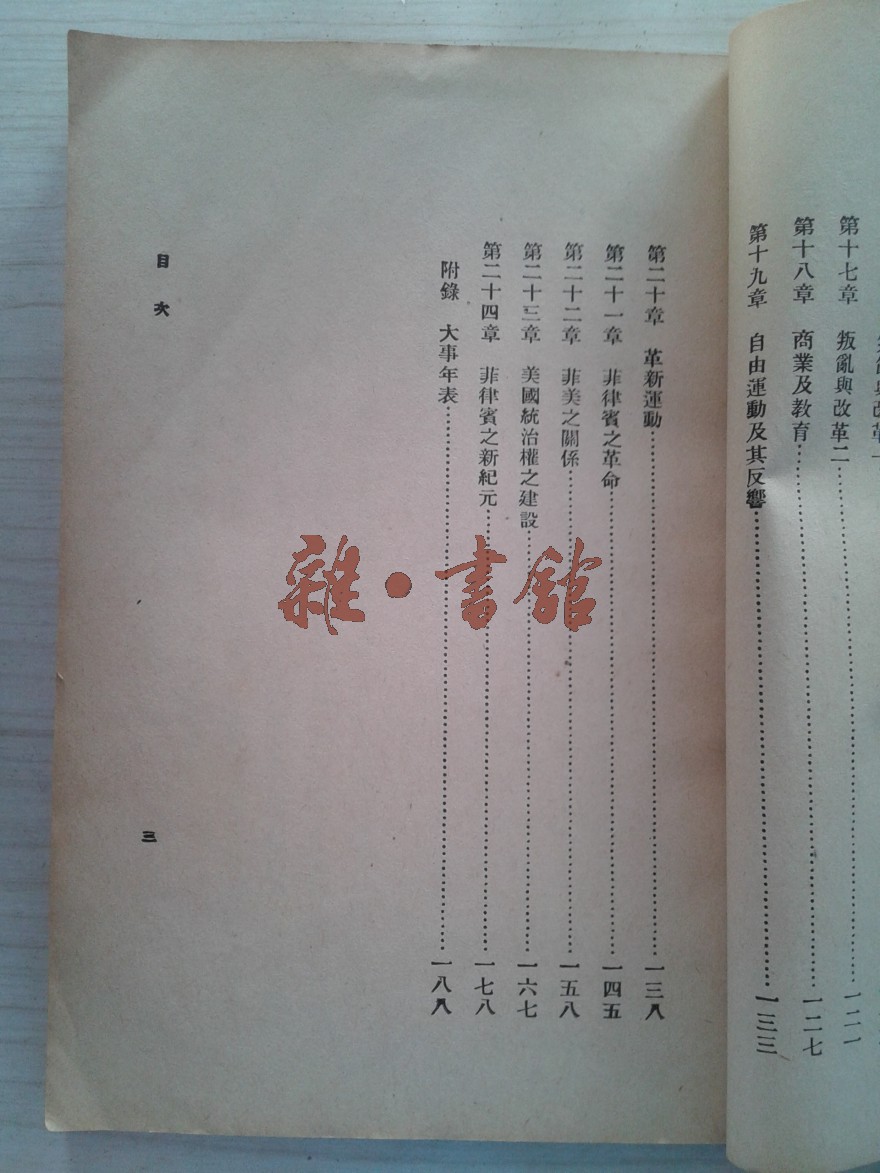 叛亂與改革一
第十七章 叛亂與改革二 一二一
第十八章 商業及教育 一二七
第十九章 自由運動及其反響 一三三
第二十章 革新運動 一三八
第二十一章 菲律賓之革命 一四五
第二十二章 菲美之關係 一五八
第二十三章 美國統治權之建設 一六七
第二十四章 菲律賓之新紀元 一七八
附錄 大事年表 一八八
目次
三
雜·書館